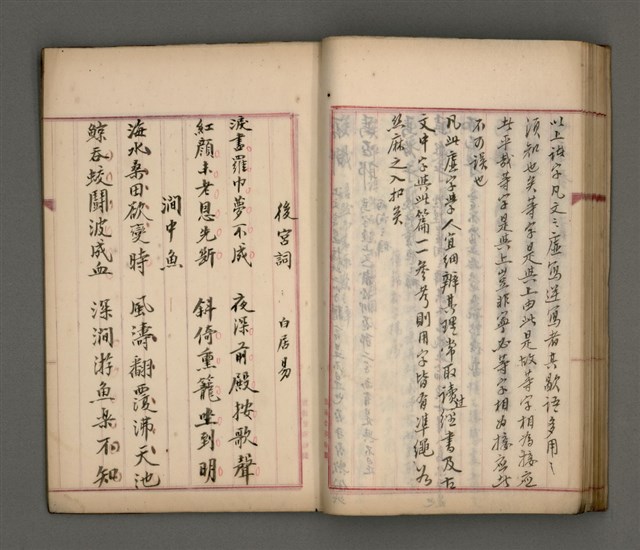 以上諸字凡文之虛寫逆寫者其歇語多用之
須知也矣等字是與上由此是故等字相為接應
哉等字是與上豈非寧必等字相為接應此
不可誤也
凡此虛字學人宜細辨其理常取讀过經書及古
文中字與此篇一一參考則用字皆有準繩若
絲麻之入扣矣
後宮詞 白居易
淚書羅巾夢不成 夜深前殿按歌聲
紅顏未老恩先斷 斜倚熏籠坐到明
澗中魚
海水桑田欲變時 風濤翻覆沸天池
鯨吞蛟鬪波成血 深澗游魚樂不知